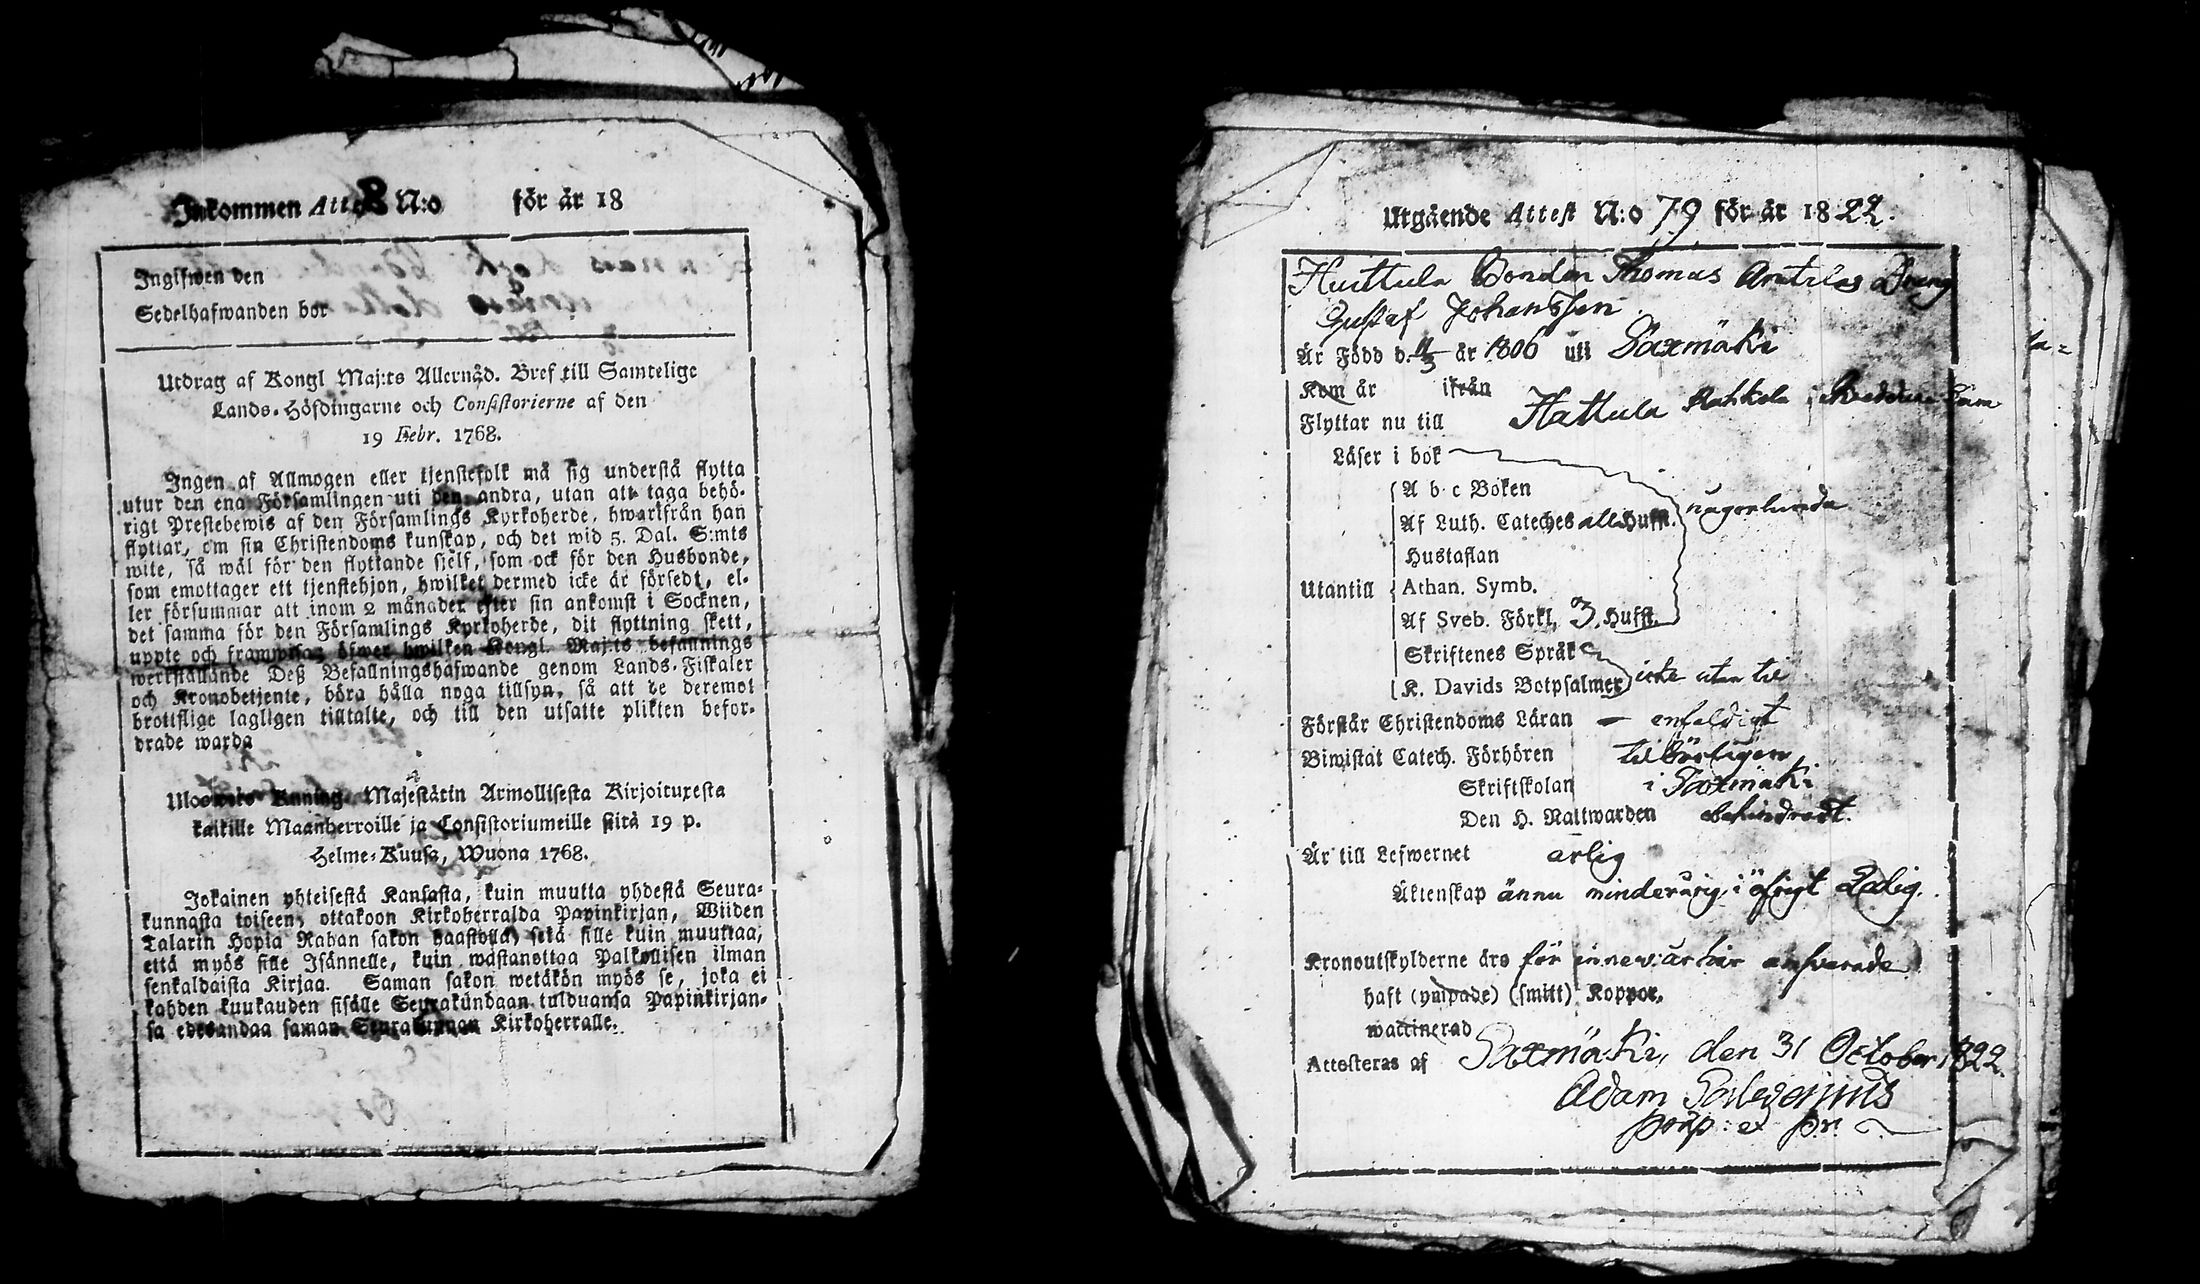 Inkommen Attest N:o för år 18
Ingifwen den
Sedelhafwanden bor
Utdrag af Kongl Maj:ts Allernåd. Bref till Samtelige
Lands-Höfdingarne och Consistorierne af den
19 Febr. 1768.
Ingen af Allmogen eller tjenstefolk må sig understå flytta
utur den ena Församlingen uti den andra, utan att taga behö-
rigt Prestebewis af den Församlings Kyrkoherde, hwarifrån han
flyttar, om sin Christendoms kunskap, och det wid 5. Dal. S:mts
wite, så wäl för den flyttande sielf, som ock för den Husbonde,
som emottager ett tjenstehjon, hwilket dermed icke är försedt, el-
ler försummar att inom 2 månader efter sin ankomst i Socknen,
det samma för den Församlings Kyrkoherde, dit flyttning skett,
uppte och framwisa; öfwer hwilken Kongl. Maj:ts befallnings
werkställande Deß Befallningshafwande genom Lands-Fiskaler
och Kronobetjente, böra hålla noga tillsyn, så att de deremot
brottslige lagligen tilltalte, och till den utsatte plikten befor-
drade warda
Uloswets Kuning. Majestätin Armollisesta Kirjoituxesta
kaikille Maanherroille ja Consistoriumeille siitä 19 p.
Helme-Kuusa, Wuona 1768.
Jokainen yhteisestä Kansasta, kuin muutta yhdestä Seura-
kunnasta toiseen, ottakoon Kirkoherralda Papinkirjan, Wiiden
Talarin Hopia Rahan sakon haastolla, sekä sille kuin muuttaa,
että myös sille Isännelle, kuin wastanottaa Palkollisen ilman
senkaldaista Kirjaa. Saman sakon wetäkön myös se, joka ei
kahden kuukauden sisälle Seurakundaan tulduansa Papinkirjan-
sa edesandaa saman Seurakunnan Kirkoherralle.
Utgående Attest N:o 79 för år 1822.
Huttula Bonden Thomas Dreng
Gustaf Johansson
Är Född d. år 1806 uti Sāxmäki
Kom år ifrån
Flyttar nu till Hattula Rahkola i
Läser i bok
A b c Boken
Af Luth. Cateches all Hufst. någorlunda
Hustaflan
Utantill Athan. Symb.
Af Sveb. Förkl. 3. Hufst.
Skriftenes Språk
K. Davids Botpsalmer icke utan til
Förstår Christendoms Läran – enfaldigt
Biwistat Catech. Förhören tilbörligen
Skriftskolan i Saxmäki
Den H. Nattwarden obehindradt.
Är till Lefwernet ärlig
Äktenskap ännu minderårig i öfrigt Ledig.
Kronoutskylderne äro för innev: år här answarade
haft (ympade) (smitt) Koppor.
waccinerad
Attesteras af Saxmäki, den 31 October 1822.
Adam